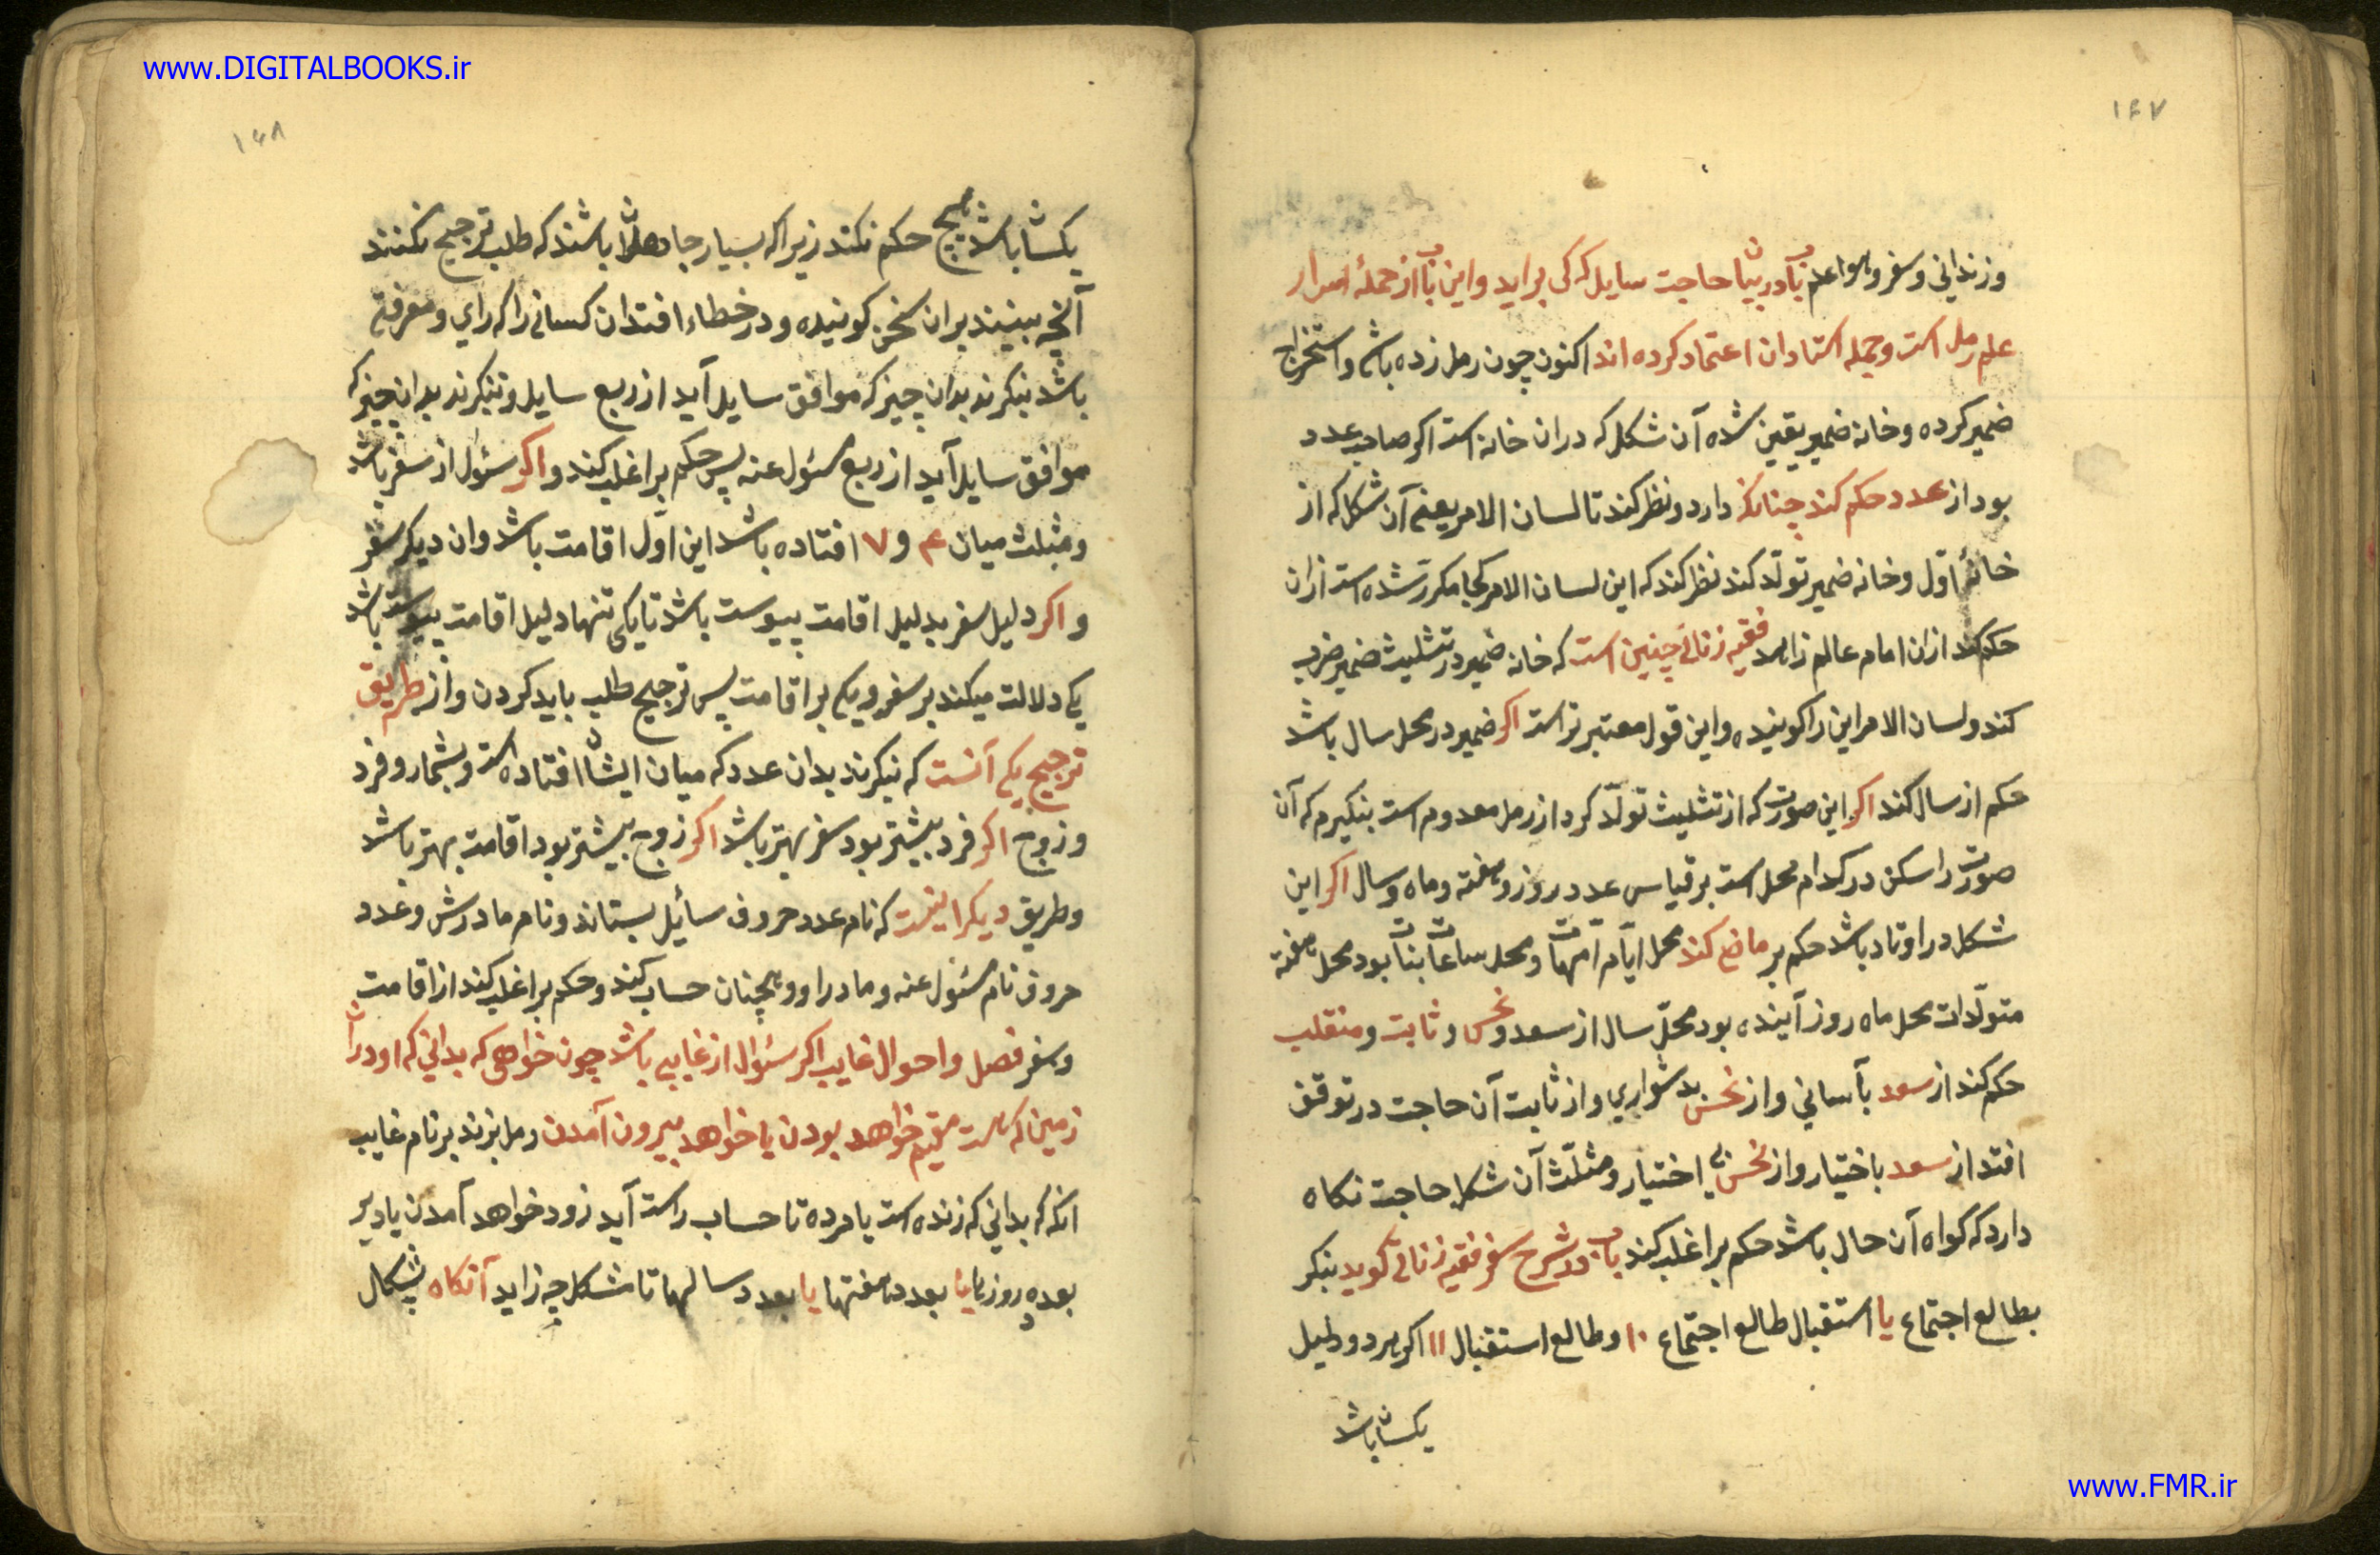 www.DIGITALBOOKS.ir
۱۴۷
وزندانی وسفر وهوا علم باب در بیان حاجت سایل که کی براید واین باب از جملهٔ اسرار
علم رمل است وجمله استادان اعتماد کرده اند اکنون چون رمل زده باشی واستخراج
ضمیر کرده وخانه ضمیر یقین شده آن شکل که دران خانه است اکر صاحب عدد
بود از عدد حکم کند چنانکه دارد ونظر کند تا لسان الامر یعنی آن شکل که از
خانهٔ اوّل وخانه ضمیر تولّد کند نظر کند که این لسان الامر کجا مکرّر شده است ازان
حکم کند ازان امام عالم زاهد فقیه زناتی چنین است که خانه ضمیر در تثلیث ضمیر ضرب
کند ولسان الامر این را کویند واین قول معتبر تر است اکر ضمیر در محل سال باشد
حکم از سال کند اکر این صورت که از تثلیث تولّد کرد از رمل معدوم است بنکیرم که آن
صورت را سکن در کدام محل است بر قیاس عدد روز وهفته وماه وسال اکر این
شکل در اوتاد باشد حکم بر ماضی کند محل ایّام امّهات ومحل ساعات بنات بود محل هفته
متولّدات محل ماه روز آینده بود محلّ سال از سعد ونحس وثابت ومنقلب
حکم کند از سعد بآسانی واز نحس بدشواری واز ثابت آن حاجت در توقف
افتد از سعد باختیار واز نحس بی اختیار ومثلّث آن شکل حاجت نکاه
دارد که کواه آن حال باشد حکم بر اغلب کند باب در شرح سفر فقیه زناتی کوید بنکر
بطالع اجتماع یا استقبال طالع اجتماع ۱۰ وطالع استقبال ۱۱ اکر هر دو دلیل
یکسان باشد
۱۴۸
یکسان باشد هیچ حکم نکند زیرا که بسیار جاهلان باشند که طلب ترجیح نکنند
آنچه ببینند بران سخن کویند ودر خطاء افتدان کسانی را که رای ومعرفتی
باشد بنکرند بدان چیز که موافق سایل آید از ربع سایل وبنکرند بدان چیز که
موافق سایل آید از ربع مسئول عنه پس حکم بر اغلب کند واکر سئول از سفر باشد
ومثلث میان ۴ و ۷ افتاده باشد این اوّل اقامت باشد وان دیکر سفر
واکر دلیل سفر بدلیل اقامت پیوست باشد تا یکی تنها دلیل اقامت پیوست باشد
یکی دلالت میکند بر سفر ویکی بر اقامت پس ترجیح طلب باید کردن واز طریق
ترجیح یکی آنست که بنکرند بدان عدد که میان ایشان افتاده است وبشمار وفرد
وزوج اکر فرد بیشتر بود سفر بهتر باشد اکر زوج بیشتر بود اقامت بهتر باشد
وطریق دیکر اینست که نام عدد حروف سائیل بستاند ونام مادرش وعدد
حروف نام مسئول عنه ومادر او وهمچنان حساب کند وحکم بر اغلب کند از اقامت
وسفر فصل واحوال غایب اکر سئوال از غایبی باشد چون خواهی که بدانی که او دران
زمین که هست مقیم خواهد بودن یا خواهد بیرون آمدن رمل بزند بر نام غایب
انکه که بدانی که زنده است یا مرده تا حساب راست آید زود خواهد آمدن یا دیر
بعدد روزها یا بعدد هفتها یا بعدد سالها تا شکل چه زاید آنکاه بشکال
www.FMR.ir